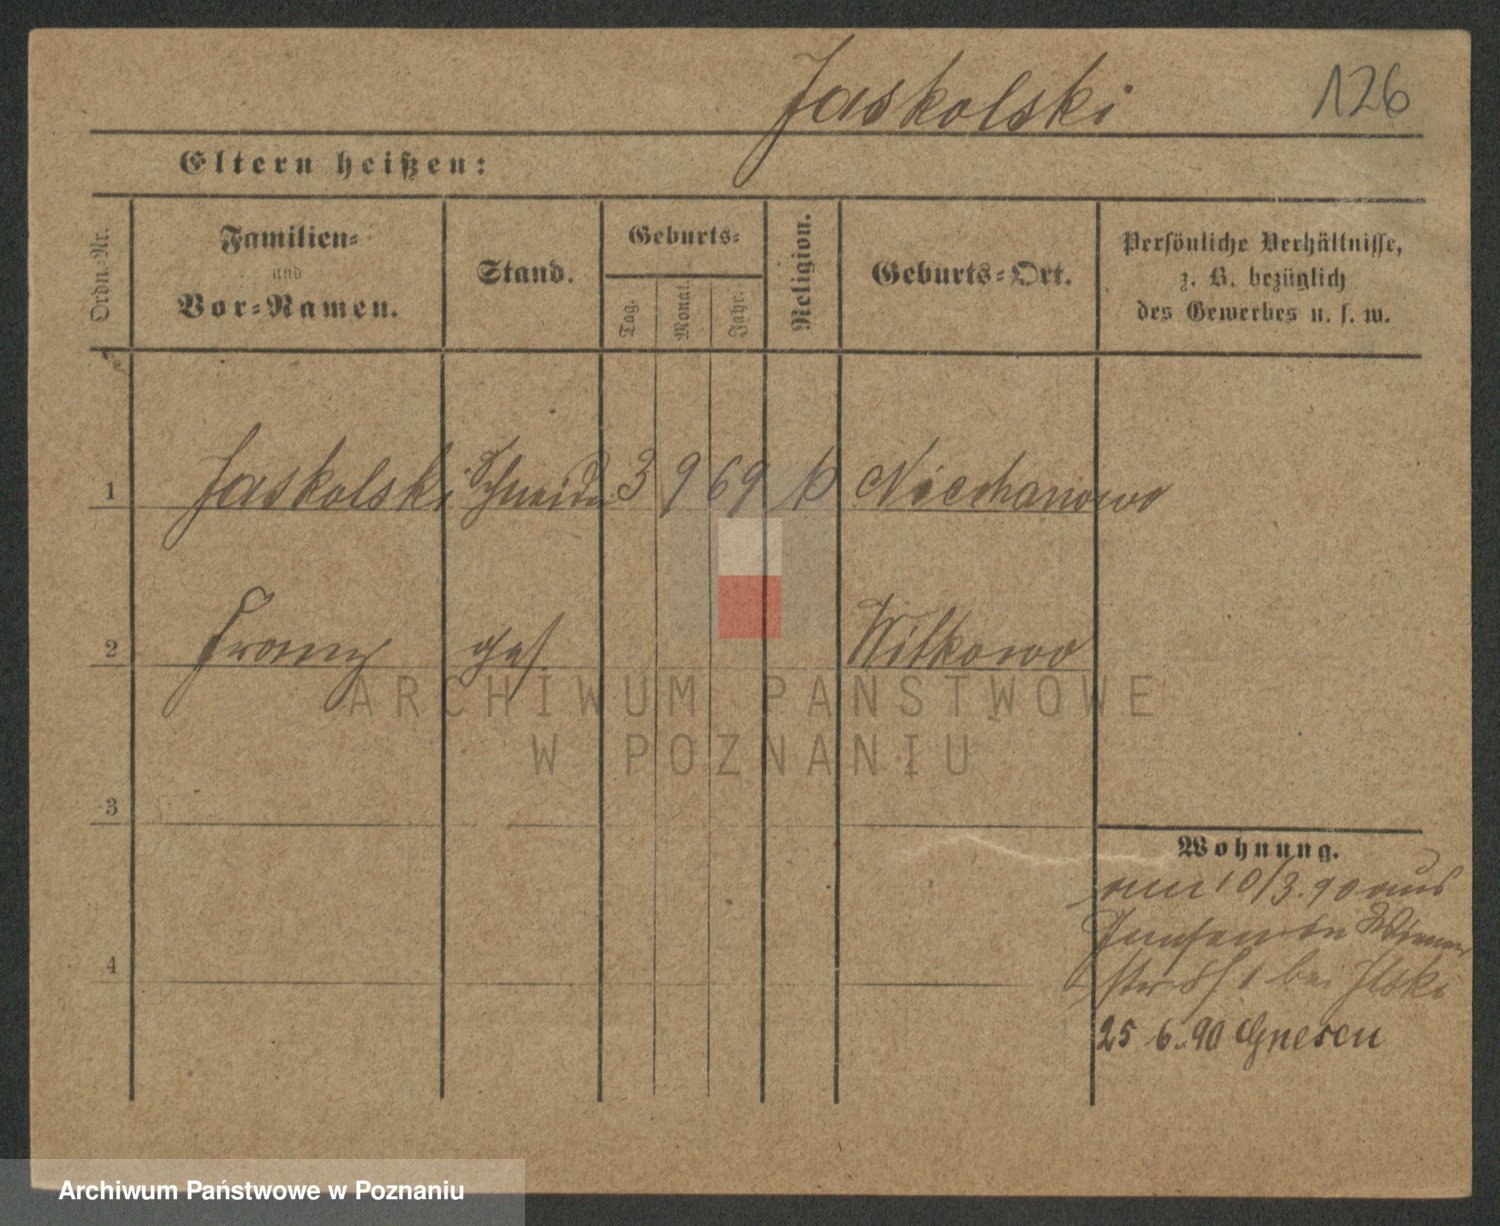 Jaskolski 126
Eltern heißen:
Ordn.-Nr.
Familien-
und
Vor-Namen.
Stand.
Geburts-
Tag. Monat. Jahr.
Religion.
Geburts-Ort.
Persönliche Verhältnisse,
z. B. bezüglich
des Gewerbes u. s. w.
1 Jaskolski Schneider 3 9 69 k Niechanowo
2 Franz ges. Witkowo
3
Wohnung.
10/3.90 aus
4
bei Ilski
25 6. 90 Gnesen
ARCHIWUM PAŃSTWOWE
W POZNANIU
Archiwum Państwowe w Poznaniu